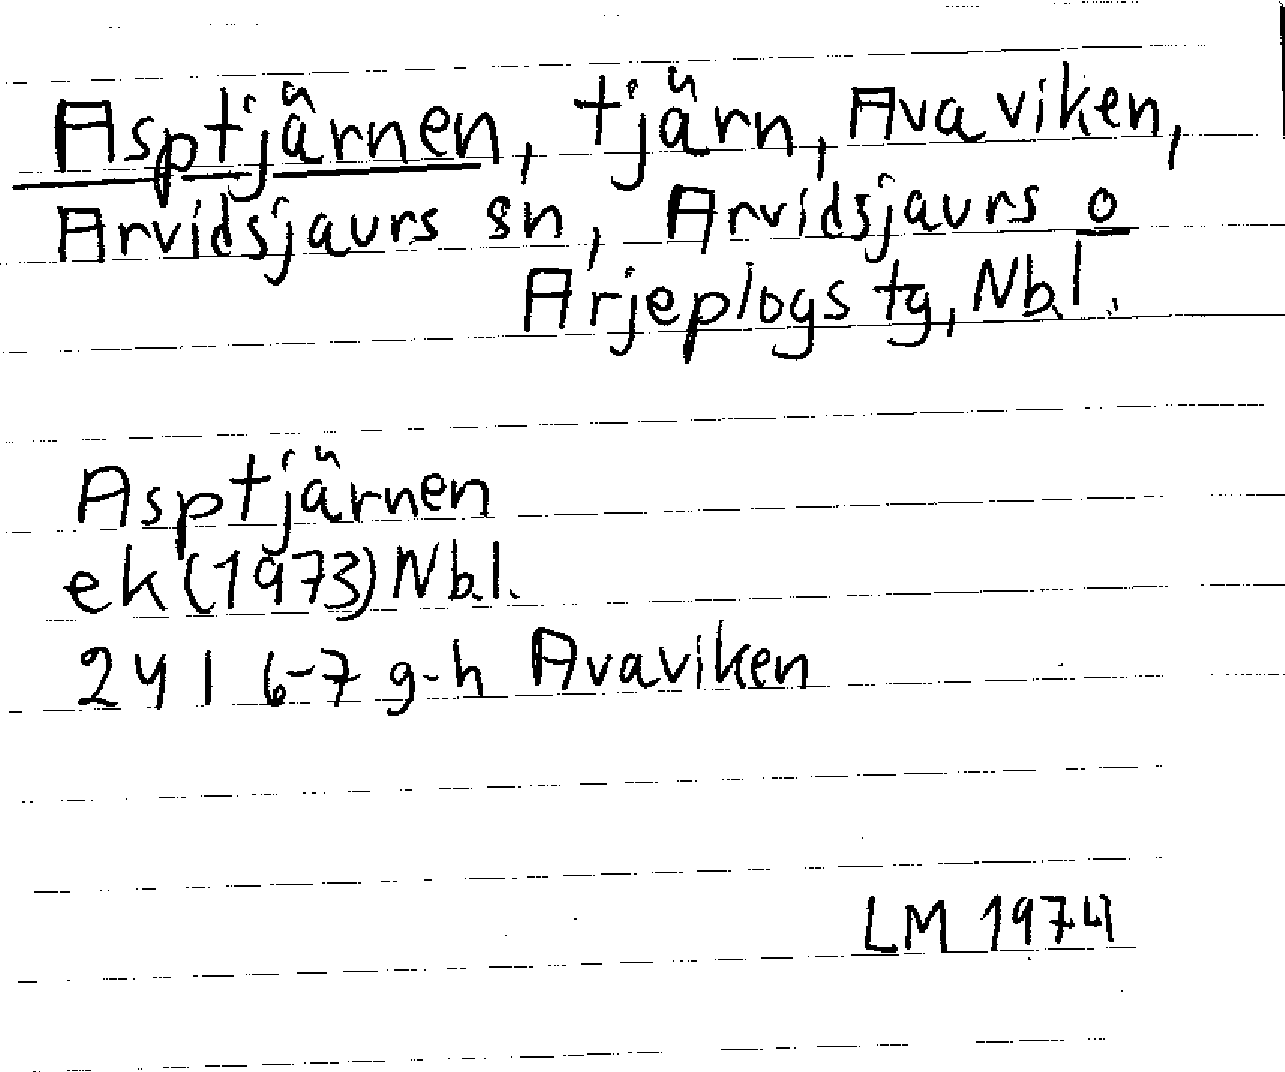 Asptjärnen, tjärn, Avaviken,
Arvidsjaurs sn, Arvidsjaurs o
Arjeplogs tg, Nbl.
Asptjärnen
ek (1973) Nbl.
24 I 6-7 g-h Avaviken
LM 1974